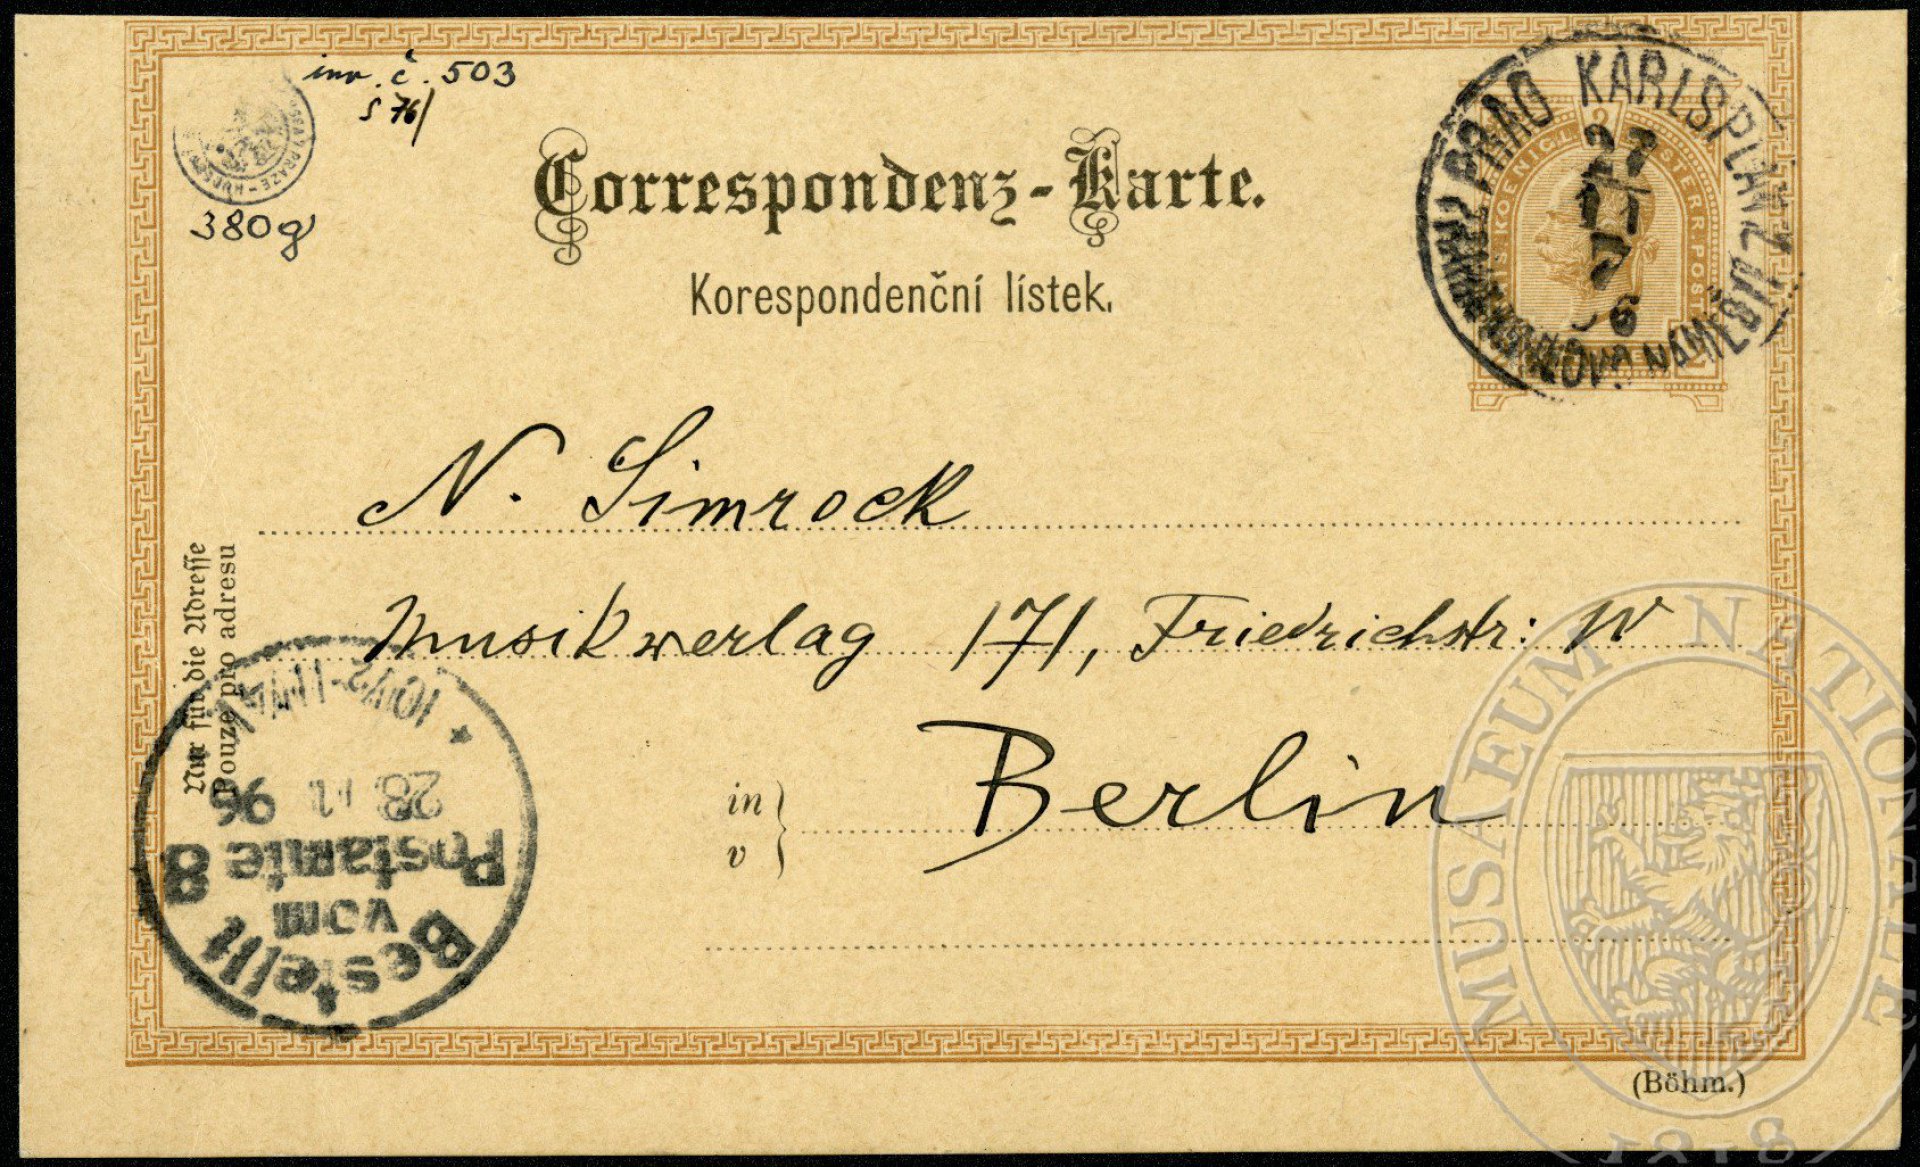 inv. č. 503
S 76/
380g
Correspondenz-Karte.
Korespondenční lístek.
PRAG KARLSPLATZ
27
11
96
KARLOVO NÁMĚSTÍ
N. Simrock
Musikverlag 171, Friedrichstr: W
in
v
Berlin
Nur für die Adresse
Pouze pro adresu
Bestellt
vom
Postamte 8
28 11 96
10½-11¾
(Böhm.)
MUSAEUM NATIONALE
1818